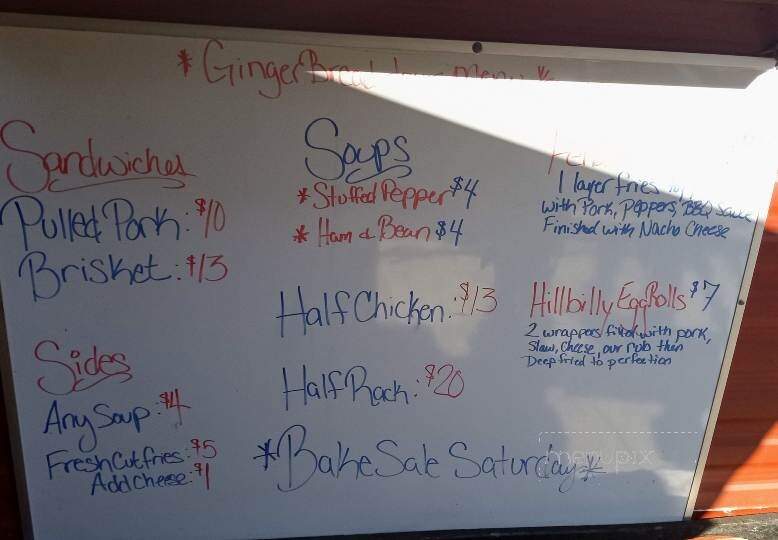 *GingerBread Menu*
Sandwiches
Pulled Pork: $10
Brisket: $13
Sides
Any Soup: $4
Fresh Cut fries: $5
Add Cheese: $1
Soups
* Stuffed Pepper $4
* Ham & Bean $4
Half Chicken: $13
Half Rack: $20
*Bake Sale Saturday*
1 layer fries
with Pork, Peppers, BBQ Sauce
Finished with Nacho Cheese
Hillbilly EggRolls $7
2 wrappers filled with pork,
Slaw, Cheese, our rub then
Deep fried to perfection
menupix